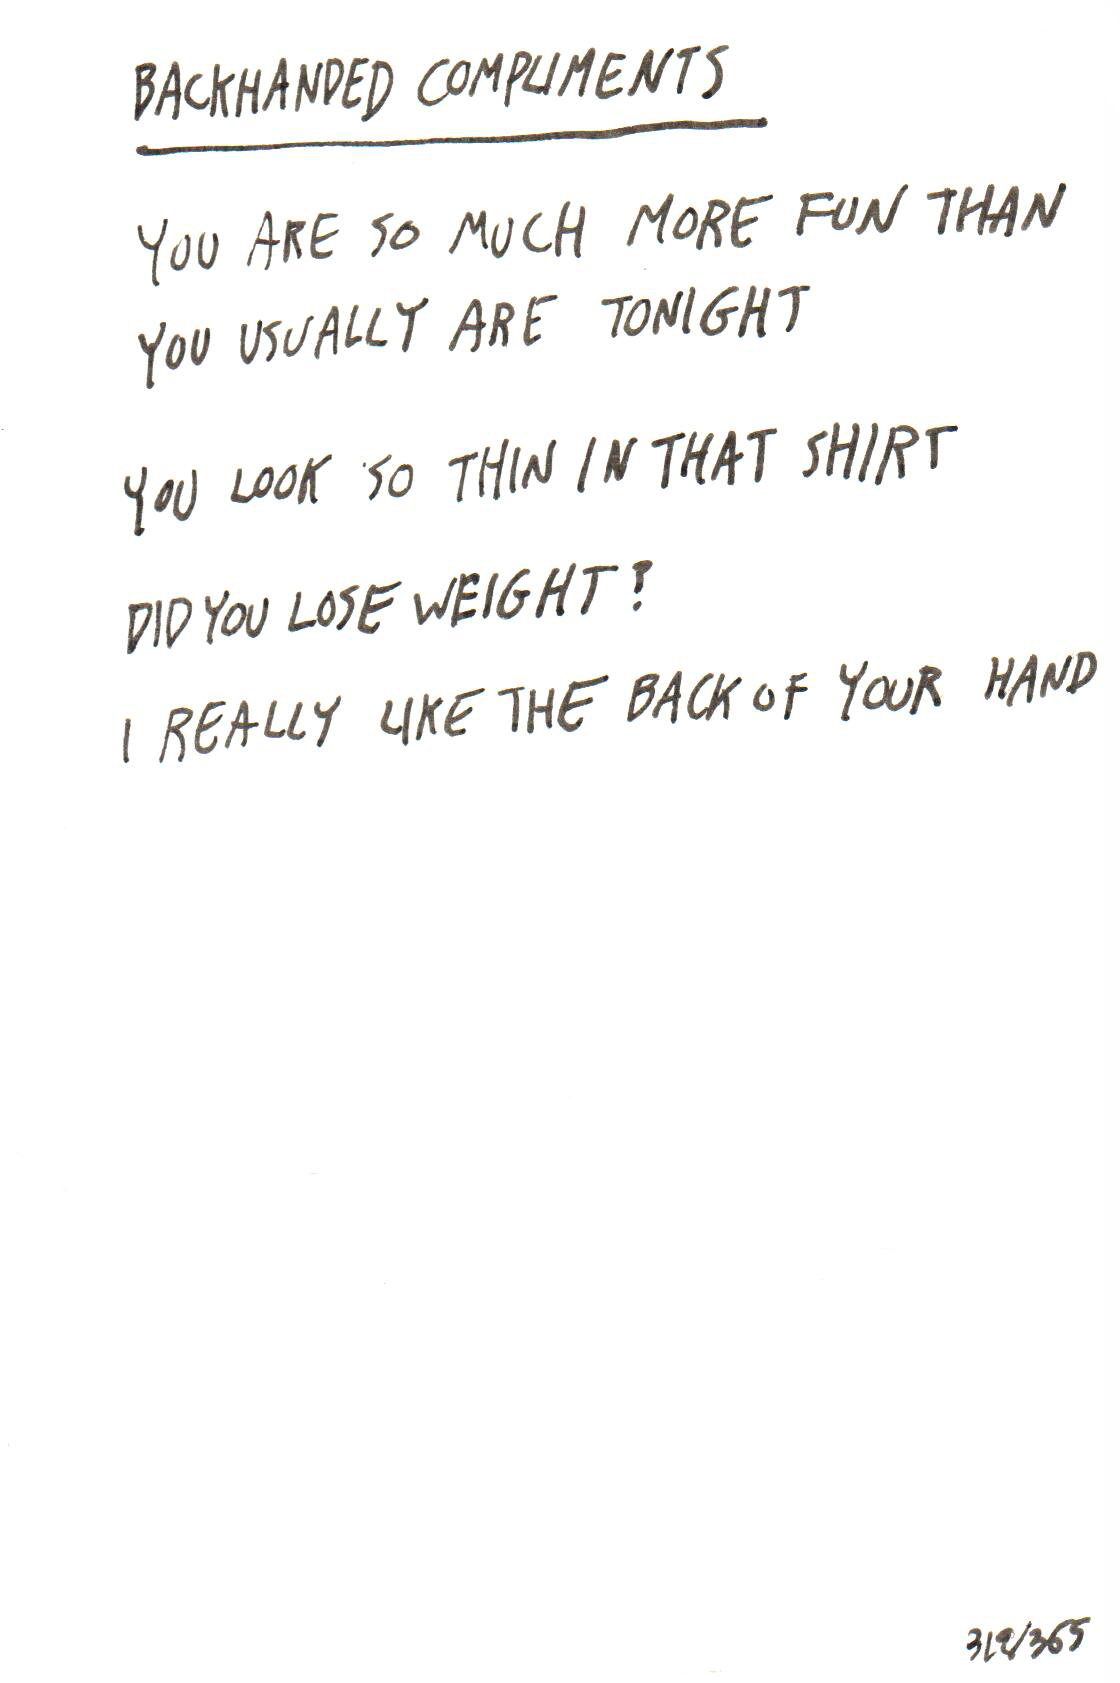 BACKHANDED COMPLIMENTS
YOU ARE SO MUCH MORE FUN THAN
YOU USUALLY ARE TONIGHT
YOU LOOK SO THIN IN THAT SHIRT
DID YOU LOSE WEIGHT?
I REALLY LIKE THE BACK OF YOUR HAND